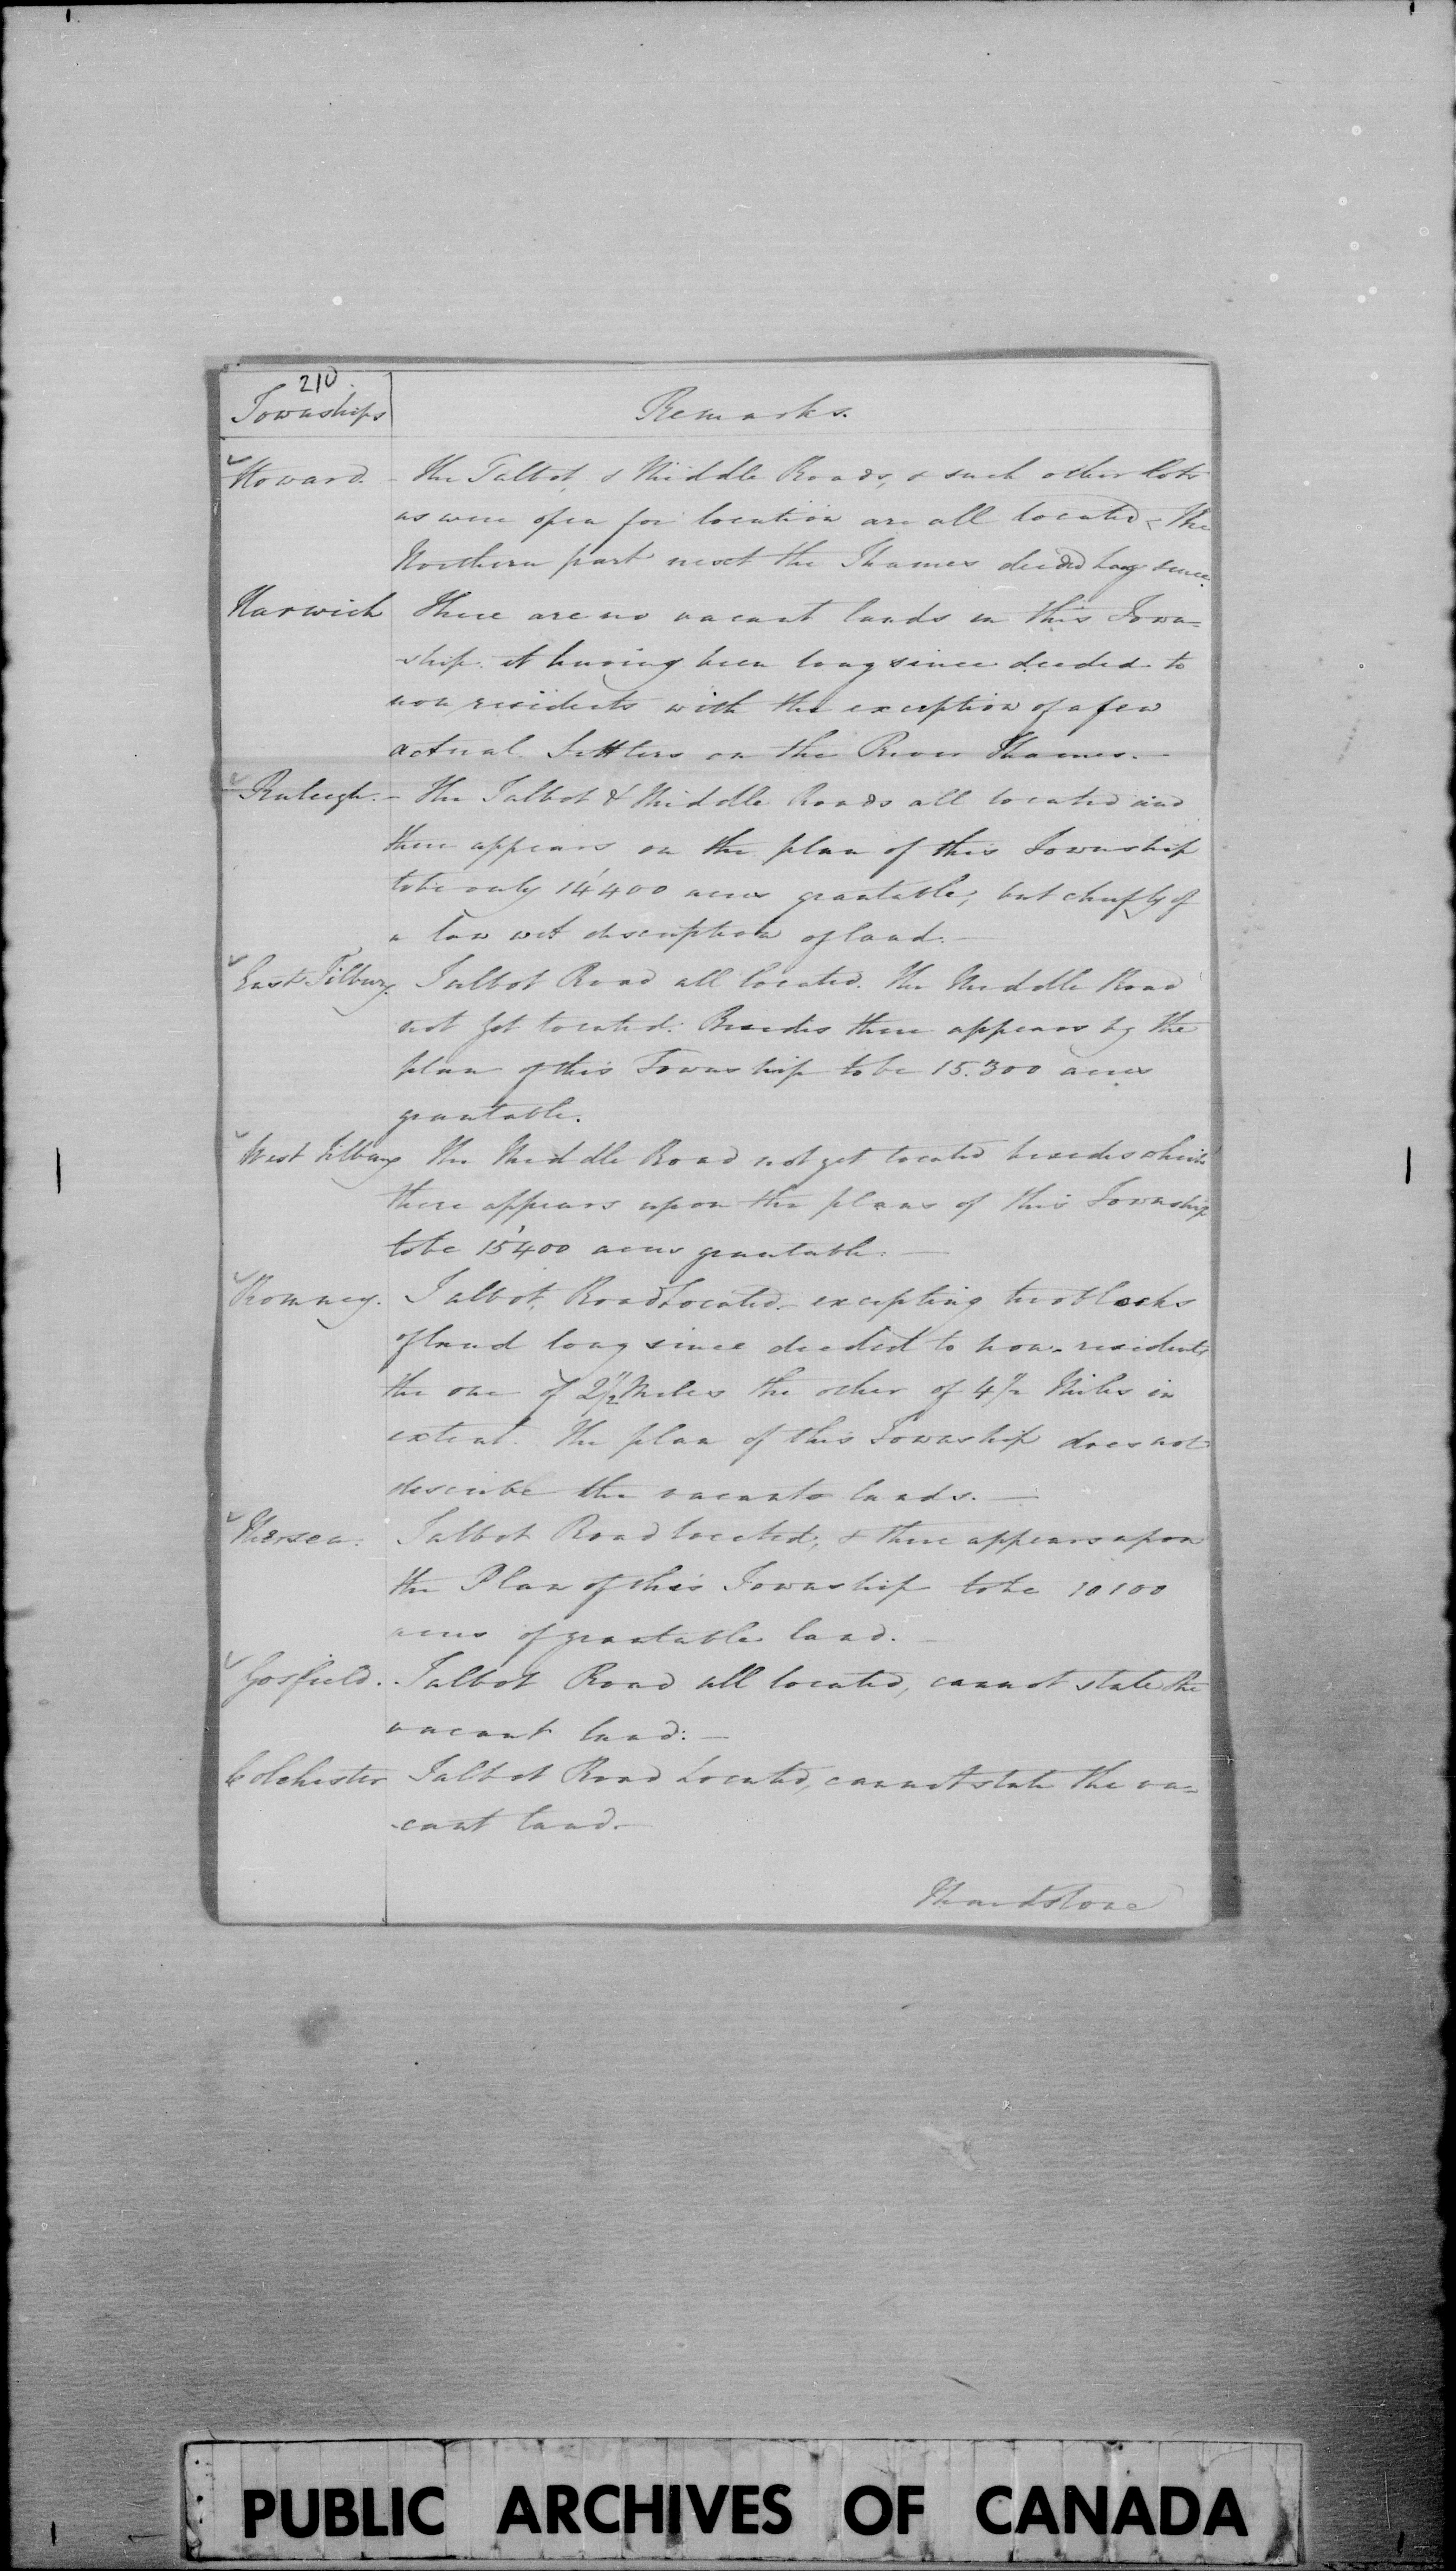 210.
Townships Remarks.
Howard. - The Talbot, & Middle Roads, & such other lots
as were open for location are all located - The
Northern part next the Thames deeded long since.
Harwich There are no vacant lands in this Town=
-ship. it having been long since deeded to
non residents with the exception of a few
actual Settlers on the River Thames. -
Raleigh. - The Talbot & Middle Roads all located and
there appears on the plan of this Township
to be only 14'400 acres grantable; but chiefly of
a low wet description of land. -
East Tilbury. Talbot Road all located. The Middle Road
not yet located. Besides there appears by the
plan of this Township to be 15.300 acres
grantable.
West Tilbury The Middle Road not yet located besides which
there appears upon the plans of this Township
to be 15'400 acres grantable. -
Romney. Talbot Road Located - excepting two blocks
of land long since deeded to non-residents
the one of 2 1/2 Miles the other of 4 1/2 Miles in
extent. The plan of this Township does not
describe the vacant lands. -
Mersea. Talbot Road located, & there appears upon
the Plan of this Township to be 10100
acres of grantable land. -
Gosfield. - Talbot Road all located, cannot state the
vacant land. -
Colchester Talbot Road Located, cannot state the va=
-cant land. -
Maidstone
PUBLIC ARCHIVES OF CANADA